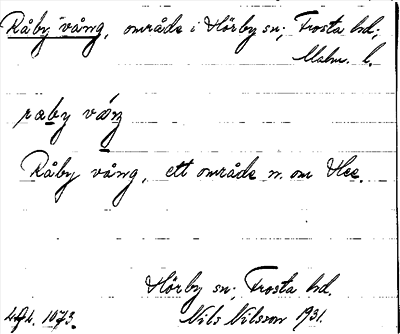 Råby vång, område i Hörby sn; Frosta hd;
Malm. l.
raby våŋ
Råby vång, ett område n. om Hee.
Hörby sn; Frosta hd.
Nils Nilsson 1931.